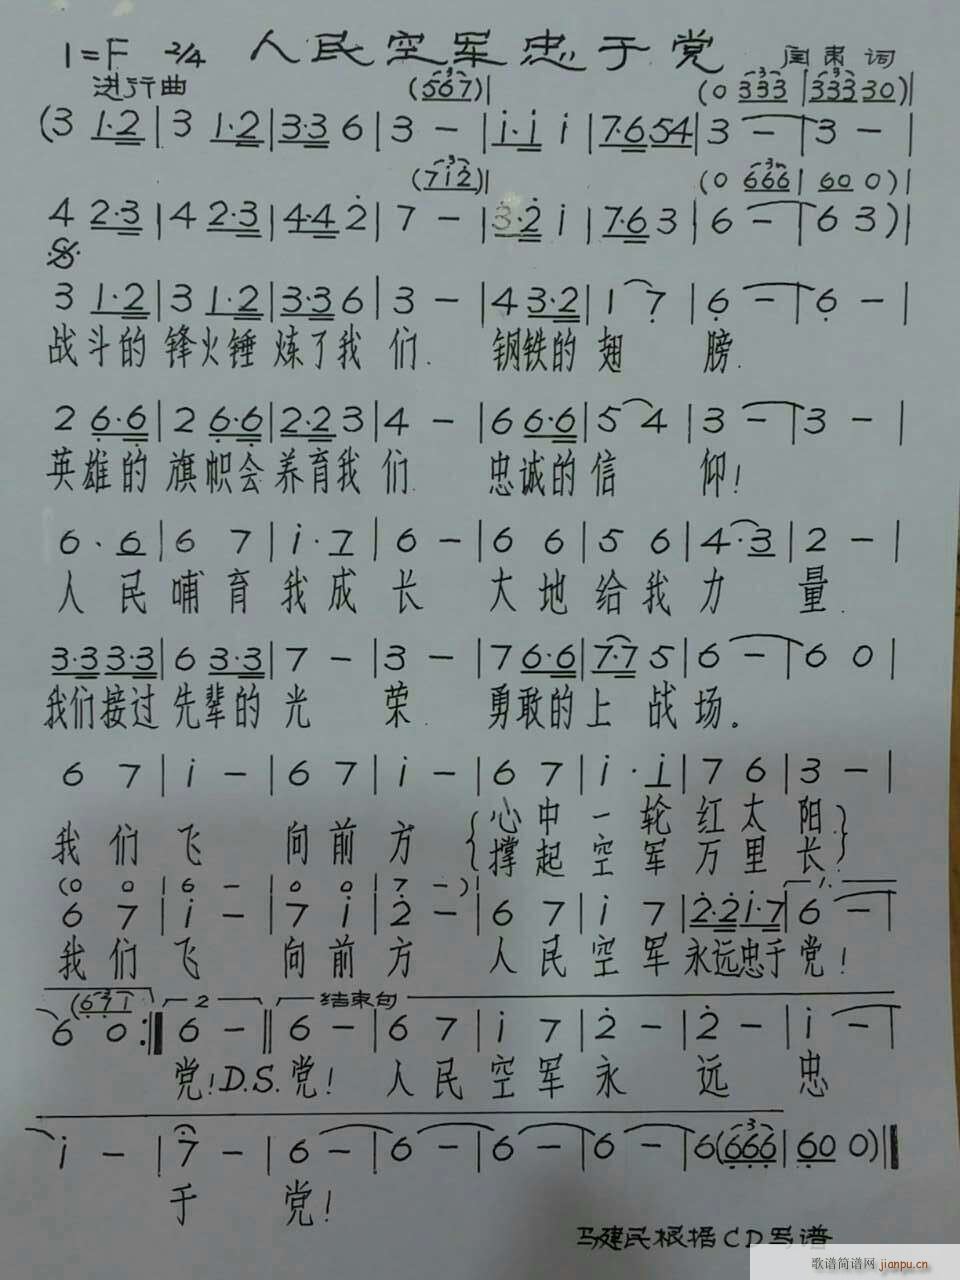 1=F 2/4 人民空军忠于党 闫肃 词
进行曲 (567)| (0 333 |333 30)|
(3 1·2|3 1·2|3·3 6|3 —|i·i i|7·6 54|3 —|3 —|
(7i2)| (0 666| 60 0)|
4 2·3|4 2·3|4·4 2|7 —|3·2 i|7·6 3|6 —|6 3)|
3 1·2|3 1·2|3·3 6|3 —|4 3·2|1 7|6 —|6 —|
战斗的 锋火锤 炼了我 们. 钢铁的 翅 膀.
2 6·6|2 6·6|2·2 3|4 —|6 6·6|5 4|3 —|3 —|
英雄的 旗帜会 养育我 们 忠诚的 信 仰!
6 · 6|6 7|i · 7|6 —|6 6|5 6|4 · 3|2 —|
人 民 哺 育 我 成 长 大 地 给 我 力 量.
3·3 3·3|6 3·3|7 —|3 —|7 6·6|7·7 5|6 —|6 0|
我们接过 先辈的 光 荣. 勇敢的 上 战 场。
6 7|i —|6 7|i —|6 7|i · i|7 6|3 —|
我 们 飞 向 前 方 {心 中 一 轮 红 太 阳}
{撑 起 空 军 万 里 长}
(0 0|6 —|0 0|7 —)| 1.
6 7|i —|7 i|2 —|6 7|i 7|2·2 i·7|6 —|
我 们 飞 向 前 方 人 民 空 军 永远忠于 党!
(671) 2 结束句
6 0:‖6 —‖6 —|6 7|i 7|2 —|2 —|i —|
党! D.S. 党! 人 民 空 军 永 远 忠
i —|7 —|6 —|6 —|6 —|6 —|6(666|60 0)‖
于 党!
马建民根据CD写谱
歌谱简谱网 jianpu.cn